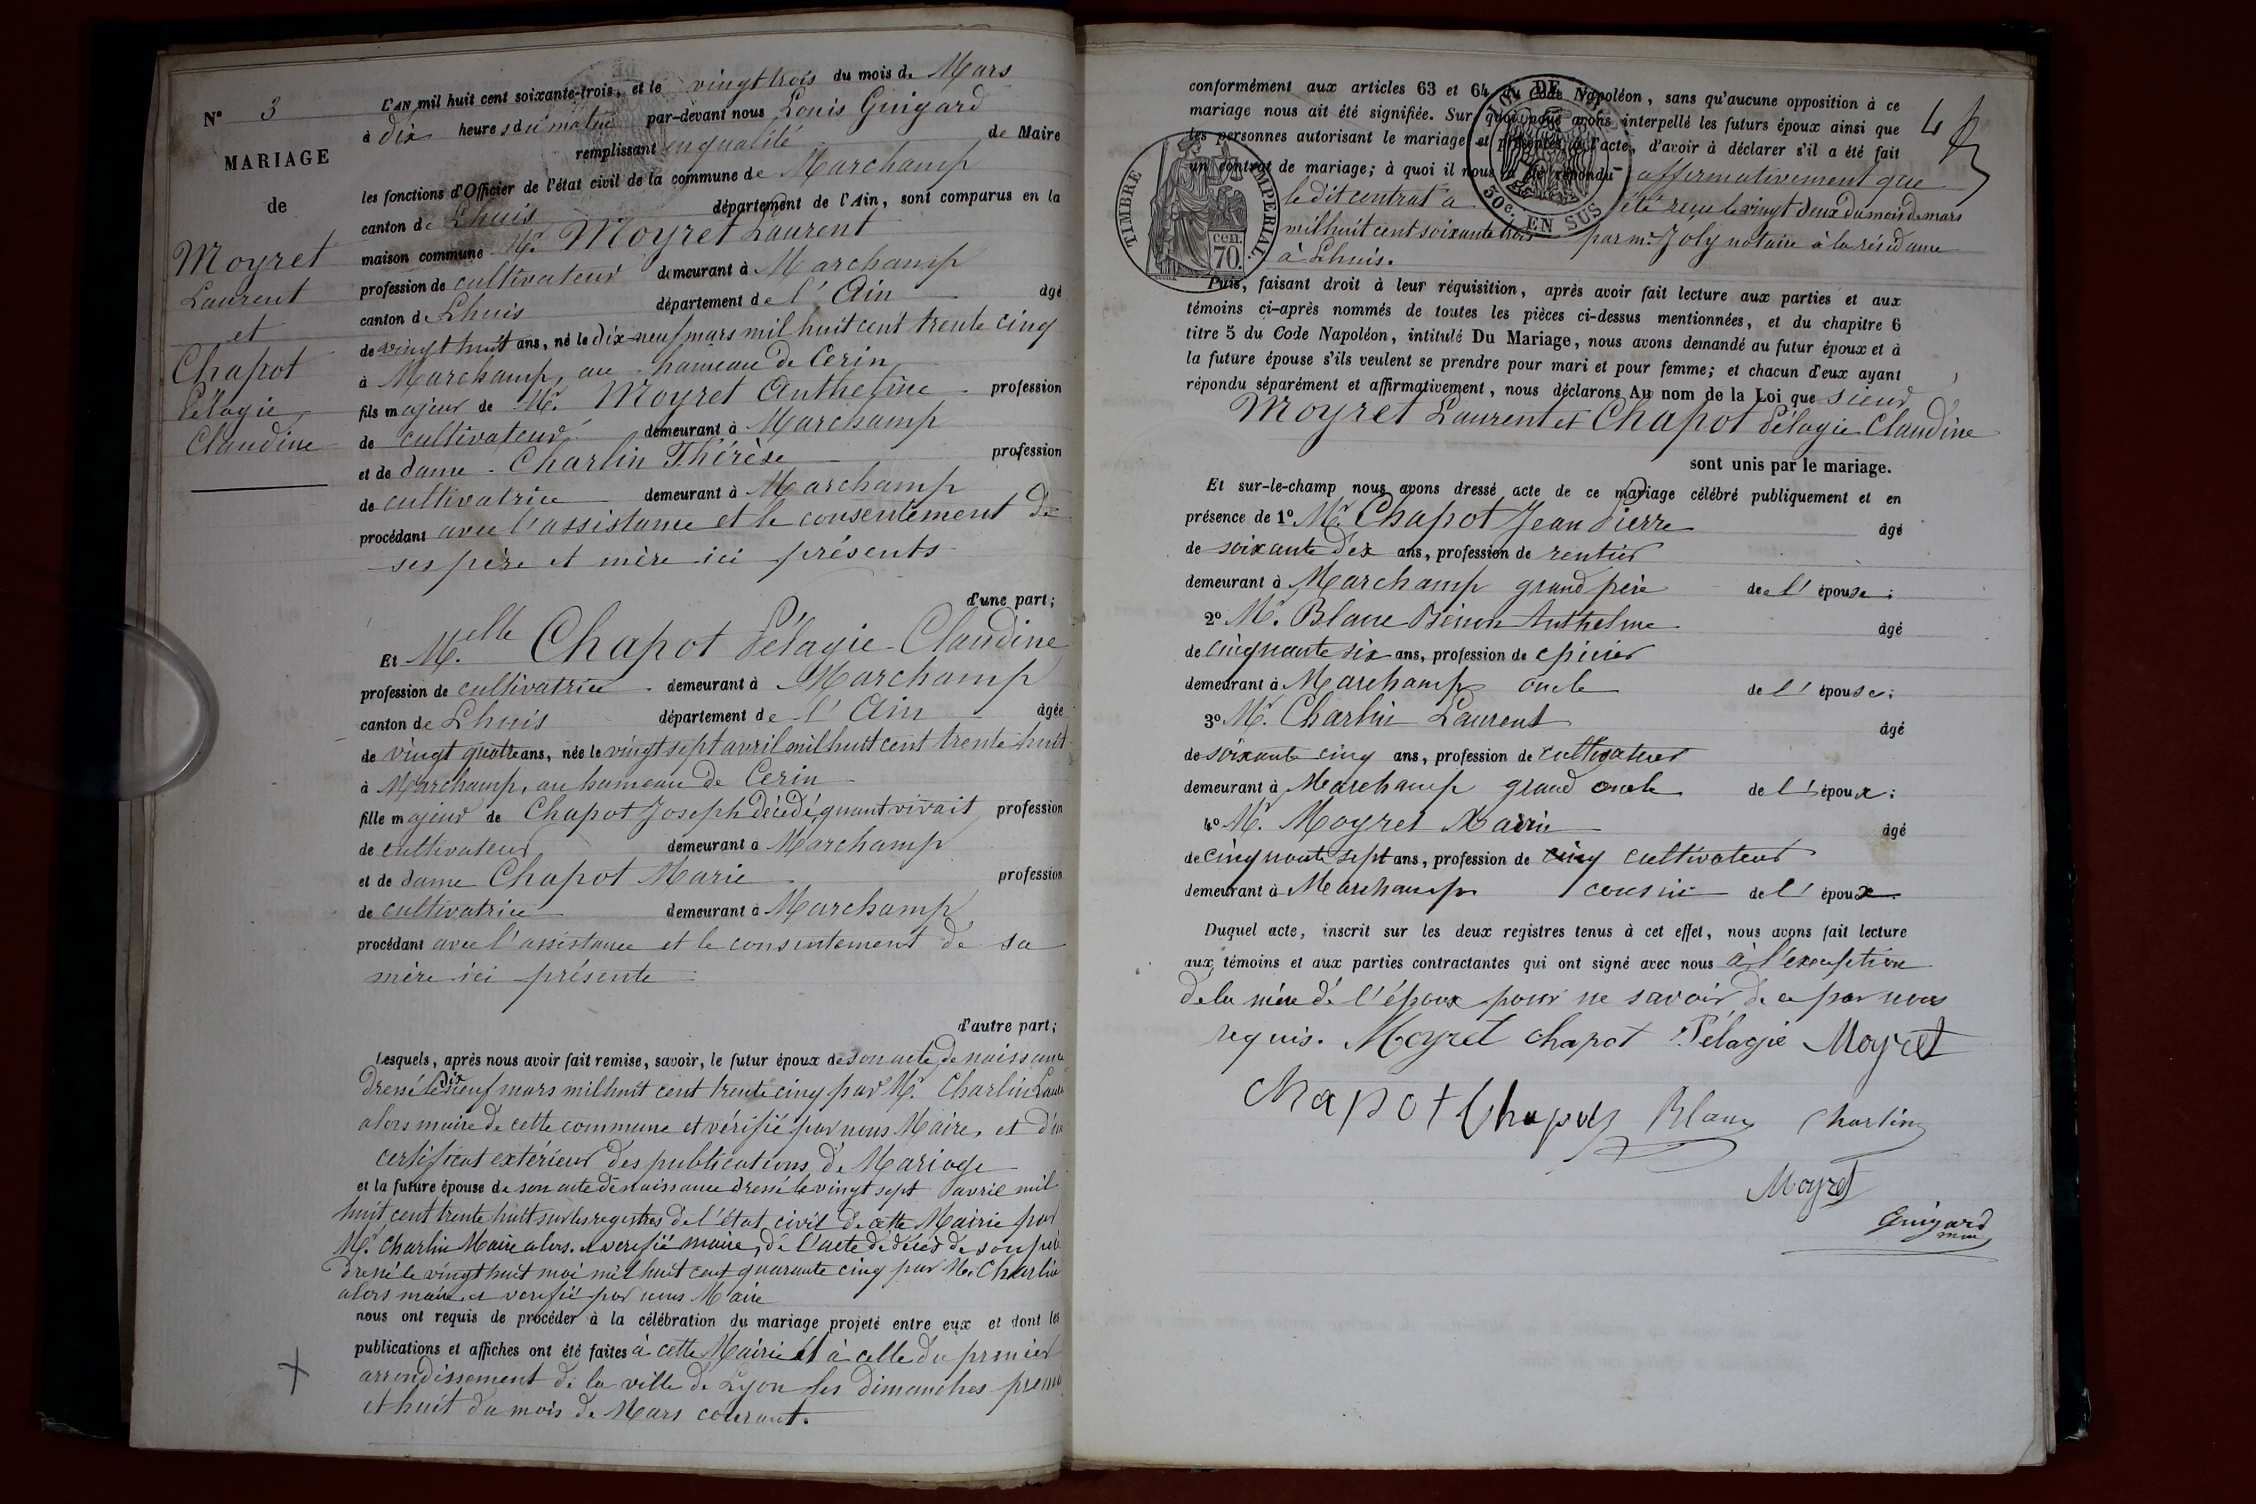 N° 3
MARIAGE
de
Moyret
Laurent
et
Chapot
Pélagie
Claudine
L'AN mil huit cent soixante-trois, et le vingt trois du mois de Mars
à dix heures du matin par-devant nous Louis Guigard
remplissant en qualité de Maire
les fonctions d'Officier de l'état civil de la commune de Marchamp
canton de Lhuis département de l'Ain, sont comparus en la
maison commune Mr. Moyret Laurent
profession de cultivateur demeurant à Marchamp
canton de Lhuis département de l'Ain âgé
de vingt huit ans, né le dix-neuf mars mil huit cent trente cinq
à Marchamp, au hameau de Cerin
fils majeur de Mr. Moyret Anthelme profession
de cultivateur demeurant à Marchamp
et de dame Charlin Thérèse profession
de cultivatrice demeurant à Marchamp
procédant avec l'assistance et le consentement de
ses père et mère ici présents
d'une part;
Et Melle Chapot Pélagie Claudine
profession de cultivatrice demeurant à Marchamp
canton de Lhuis département de l'Ain âgée
de vingt quatre ans, née le vingt sept avril mil huit cent trente huit
à Marchamp, au hameau de Cerin
fille majeur de Chapot Joseph décédé, quant vivait profession
de cultivateur demeurant à Marchamp
et de dame Chapot Marie profession
de cultivatrice demeurant à Marchamp
procédant avec l'assistance et le consentement de sa
mère ici présente
d'autre part;
Lesquels, après nous avoir fait remise, savoir, le futur époux de son acte de naissance
dressé le dix neuf mars mil huit cent trente cinq par Mr. Charlin
alors maire de cette commune et vérifié par nous Maire, et d'un
certificat extérieur des publications de Mariage
et la future épouse de son acte de naissance dressé le vingt sept avril mil
huit cent trente huit sur les registres de l'état civil de cette Mairie par
Mr. Charlin Maire alors et verifié maire, de l'acte de décès de son père
dressé le vingt huit mai mil huit cent quarante cinq par Mr. Charlin
alors maire et verifié par nous Maire
nous ont requis de procéder à la célébration du mariage projeté entre eux et dont les
publications et affiches ont été faites à cette Mairie et à celle du premier
arrondissement de la ville de Lyon les dimanches premier
et huit du mois de Mars courant.
conformément aux articles 63 et 64 du Code Napoléon, sans qu'aucune opposition à ce
mariage nous ait été signifiée. Sur quoi nous avons interpellé les futurs époux ainsi que
les personnes autorisant le mariage et présentes à l'acte, d'avoir à déclarer s'il a été fait
un contrat de mariage; à quoi il nous a été répondu affirmativement que
le dit contrat a été reçu le vingt deux du mois de mars
mil huit cent soixante trois par me. Joly notaire à la résidance
à Lhuis.
TIMBRE IMPERIAL
cen.
70.
30c. EN SUS
Puis, faisant droit à leur réquisition, après avoir fait lecture aux parties et aux
témoins ci-après nommés de toutes les pièces ci-dessus mentionnées, et du chapitre 6
titre 5 du Code Napoléon, intitulé Du Mariage, nous avons demandé au futur époux et à
la future épouse s'ils veulent se prendre pour mari et pour femme; et chacun d'eux ayant
répondu séparément et affirmativement, nous déclarons Au nom de la Loi que sieur
Moyret Laurent et Chapot Pélagie Claudine
sont unis par le mariage.
Et sur-le-champ nous avons dressé acte de ce mariage célébré publiquement et en
présence de 1° Mr. Chapot Jean Pierre âgé
de soixante dix ans, profession de rentier
demeurant à Marchamp grand père de l'épouse;
2° Mr. Blanc Benon Anthelme âgé
de cinquante six ans, profession de épicier
demeurant à Marchamp oncle de l'épouse;
3° Mr. Charlin Laurent âgé
de soixante cinq ans, profession de cultivateur
demeurant à Marchamp grand oncle de l'époux;
4° Mr. Moyret âgé
de cinquante sept ans, profession de cinq cultivateur
demeurant à Marchamp cousin de l'époux
Duquel acte, inscrit sur les deux registres tenus à cet effet, nous avons fait lecture
aux témoins et aux parties contractantes qui ont signé avec nous à l'exception
de la mère de l'époux pour ne savoir de ce par nous
requis. Moyret Chapot Pélagie Moyret
Chapot Chapot Blanc Charlin
Moyret
Guigard
maire